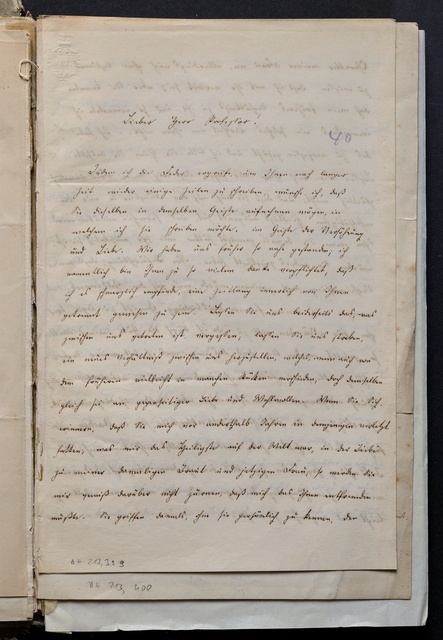 Lieber Herr Professor!
40
Indem ich die Feder ergreife, um Ihnen nach langer
Zeit wieder einige Zeilen zu schreiben, wünsche ich, daß
Sie dieselben in demselben Geiste aufnehmen mögen, in
welchem ich sie schreiben möchte, im Geiste der Versöhnung
und Liebe. Wir haben uns früher so nahe gestanden; ich
namentlich bin Ihnen zu so vielem Danke verpflichtet, daß
ich es schmerzlich empfinde, eine Zeitlang innerlich von Ihnen
getrennt gewesen zu sein. Lassen Sie uns beiderseits das, was
zwischen uns getreten ist vergessen, lassen Sie uns streben,
ein neues Verhältniß zwischen uns herzustellen, welches, wenn auch von
dem früheren vielleicht in manchen Stücken verschieden, doch demselben
gleich sei an gegenseitiger Liebe und Wohlwollen. Wenn Sie Sich
erinnern, daß Sie mich vor anderthalb Jahren in demjenigen verletzt
hatten, was mir das Heiligste auf der Welt war, in der Liebe
zu meiner damaligen Braut und jetzigen Frau, so werden Sie
mir gewiß darüber nicht zürnen, daß mich das Ihnen entfremden
mußte. Sie griffen damals, ohne sie persönlich zu kennen, den